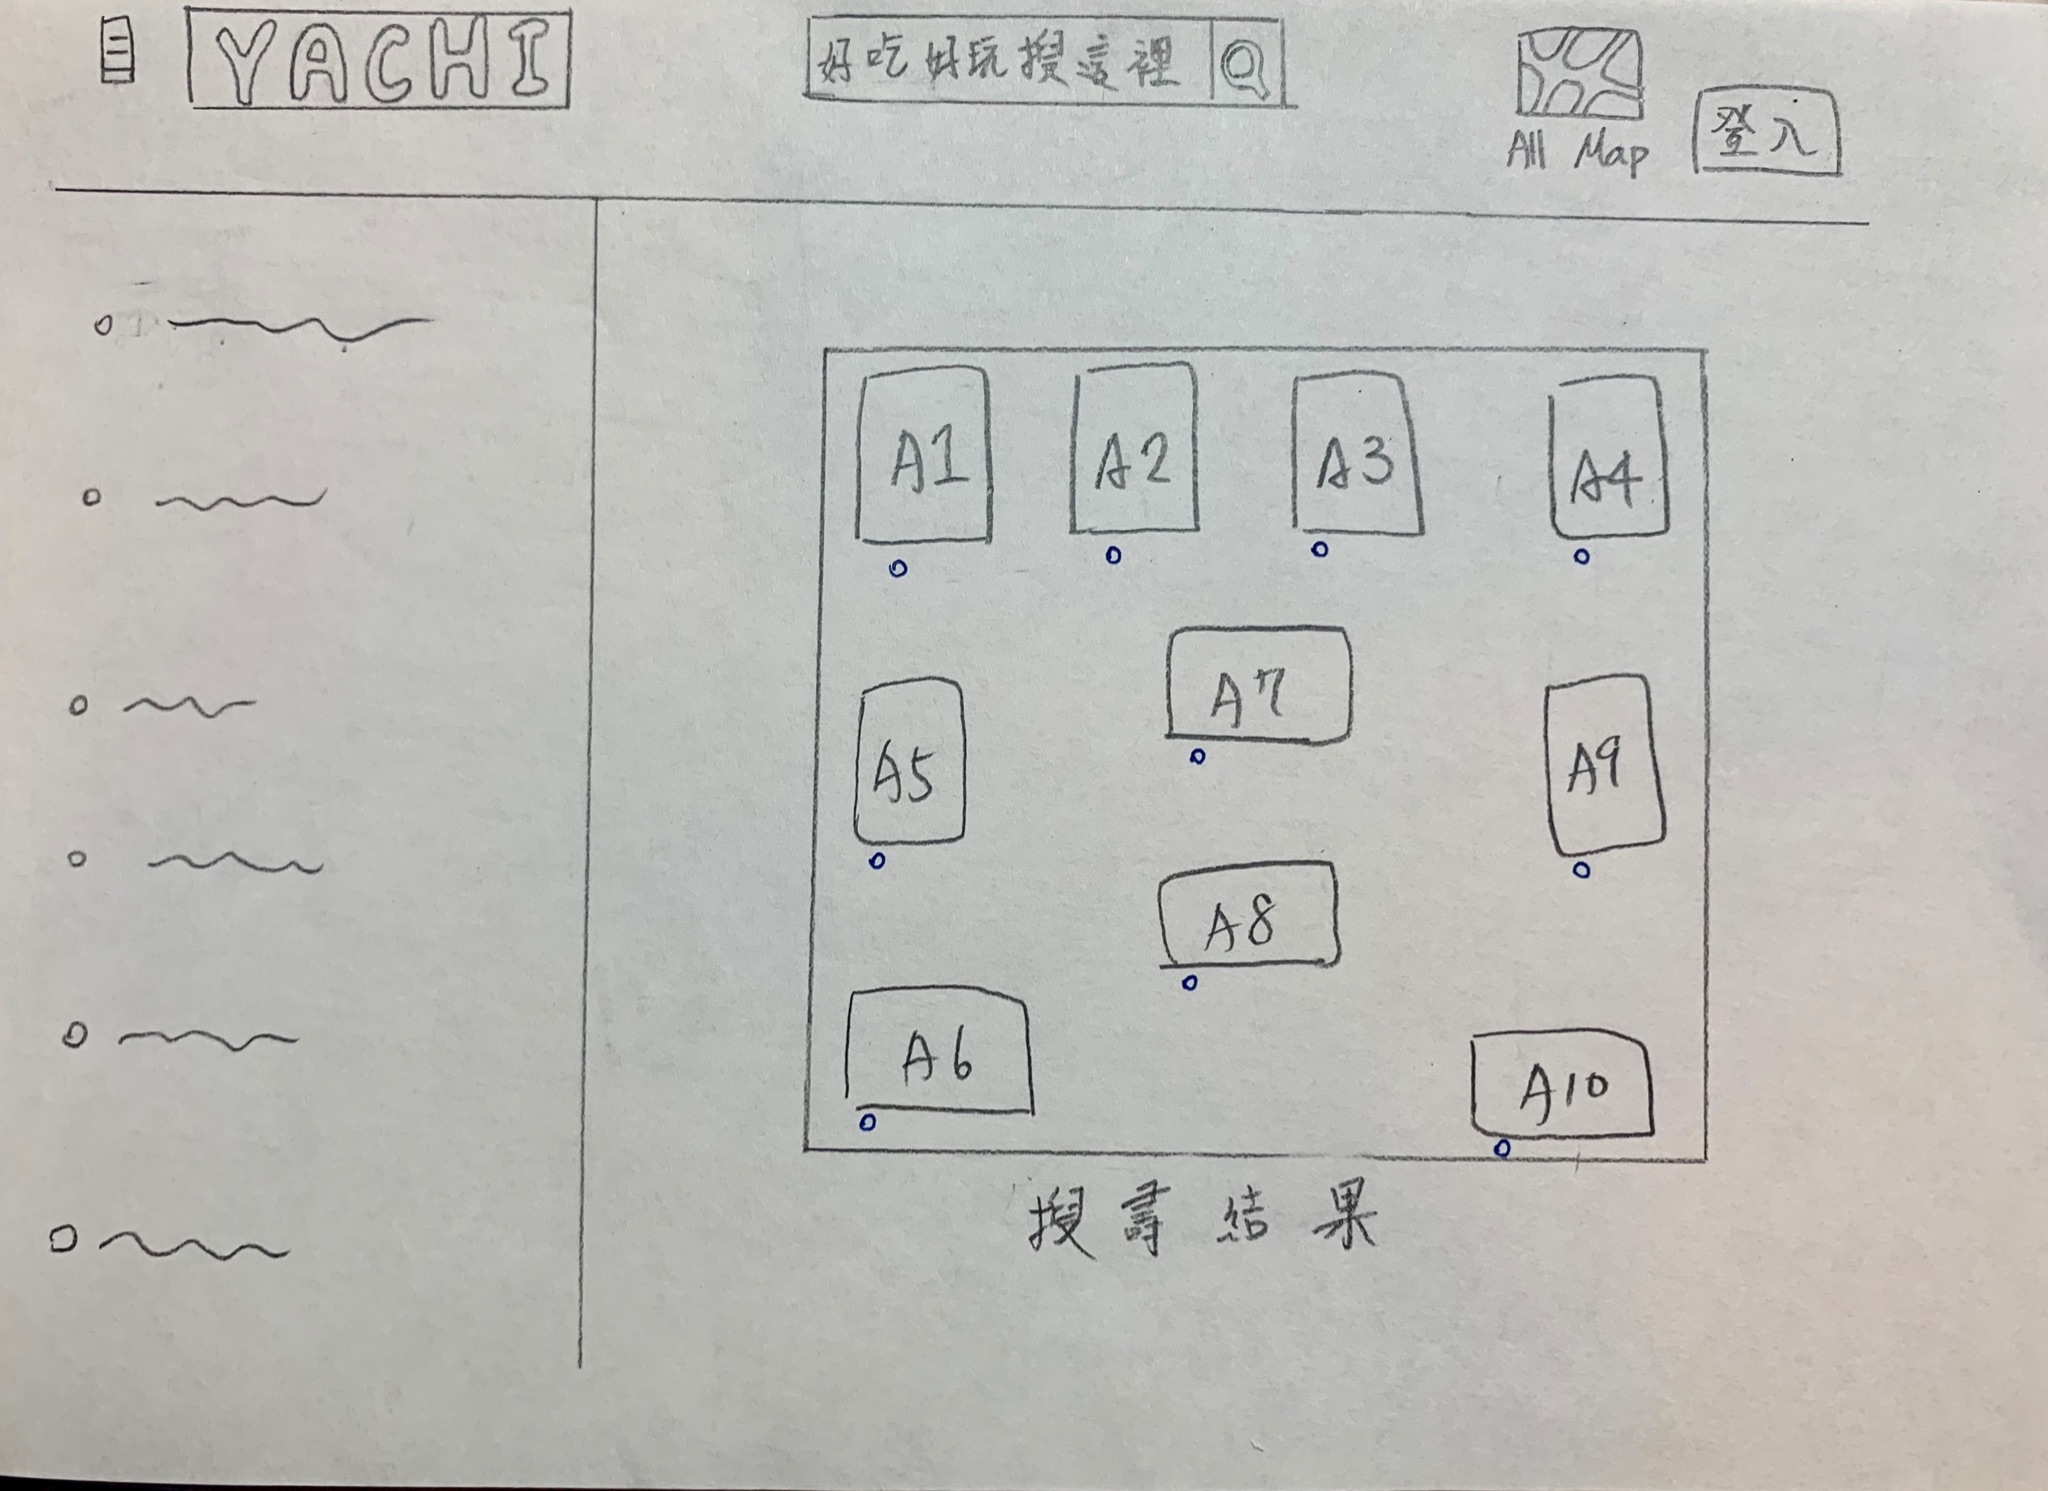 YACHI
好吃好玩搜這裡
All Map
登入
A1 A2 A3 A4
A7
A5 A9
A8
A6 A10
搜尋結果